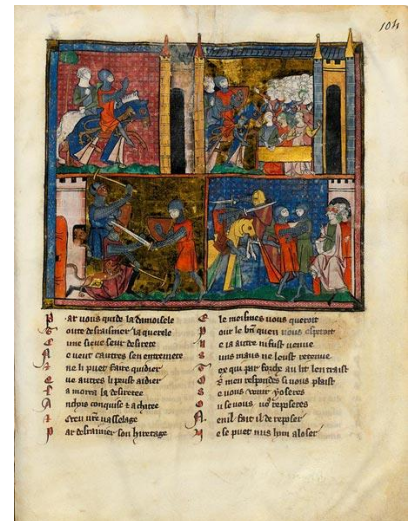 104
P ar vous quide la damoisele
T oute desraisnier la querele
une siene seur desirete
ne veut cautres sen entremete
ne li puet faire quidier
autres li peust aidier
la desiretee
nchois conquise & achatee
creu vasselage
P ar desraisnier son hiretage
E le meismes vous queroit
P our le bn quen vous esperoit
ia autre ni fust venue
uns maus ne leust retenue
qui par forche au lit len traist
respondes si vous plaist
venir oseres
u se vous reposeres
N enil fait il de reposer
se puet nus hom aloser